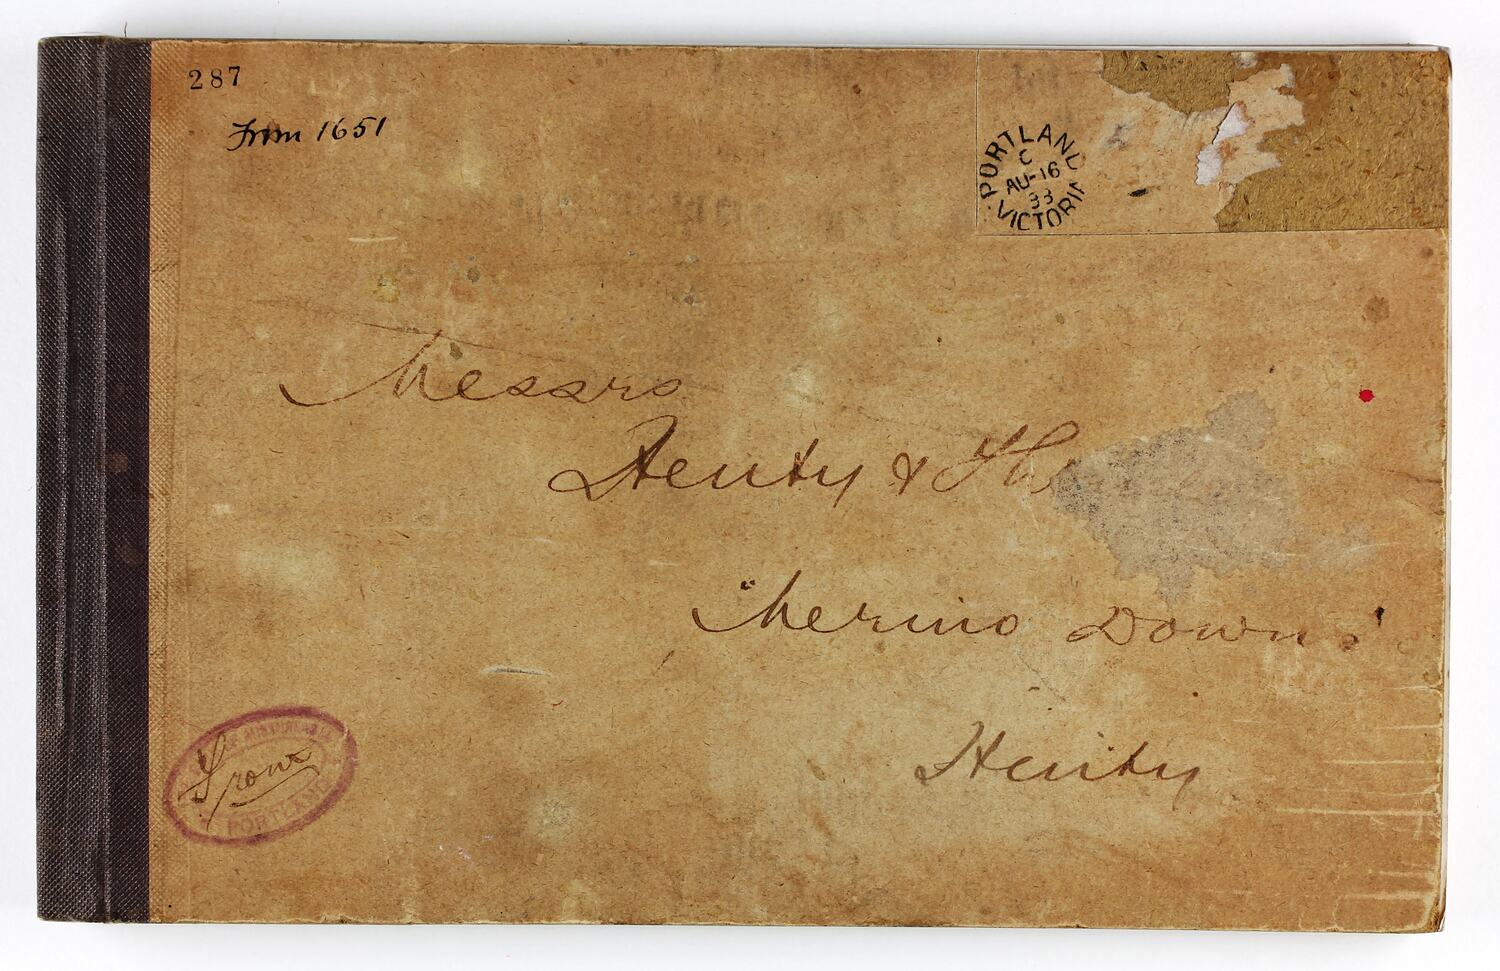 287
From 1651
PORTLAND
C
AU-16
33
VICTORIA
Messrs
Henty &
"Merino Downs"
Henty
PORTLAND